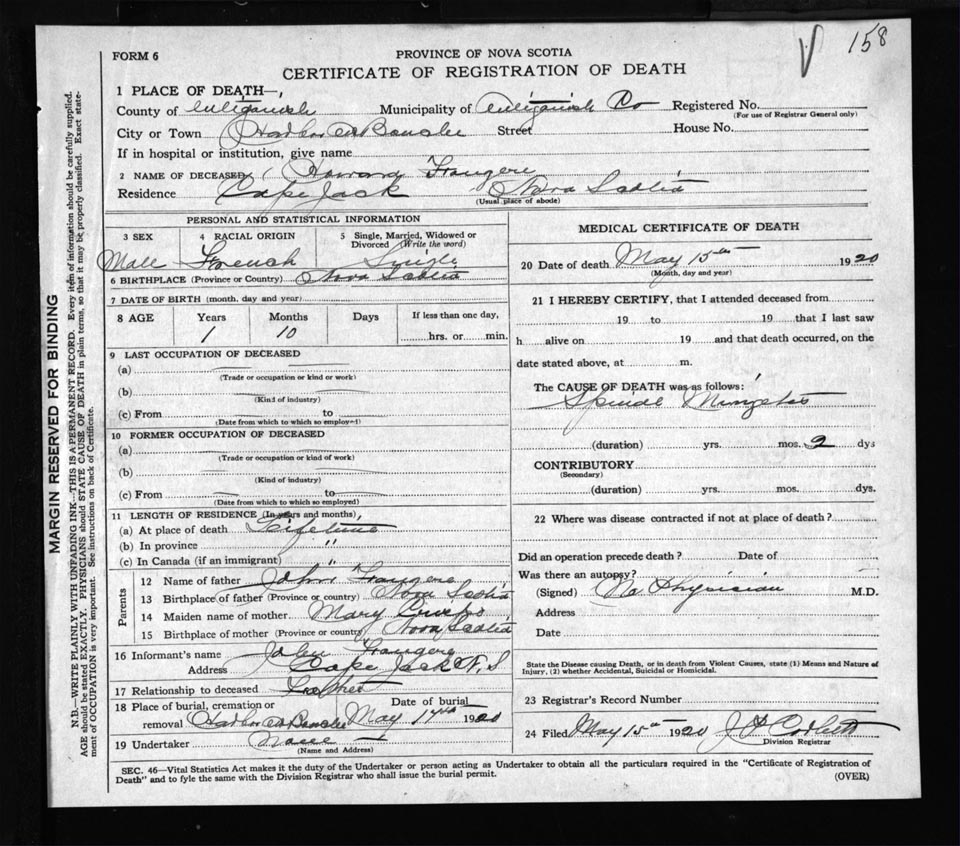 158
FORM 6
PROVINCE OF NOVA SCOTIA
CERTIFICATE OF REGISTRATION OF DEATH
1 PLACE OF DEATH—
County of Antiganish Municipality of Antiganish Co Registered No.
(For use of Registrar General only)
City or Town Harbor Street House No.
If in hospital or institution, give name
2 NAME OF DECEASED Howard Frangere
Residence Cape Jack Nova Scotia
(Usual place of abode)
PERSONAL AND STATISTICAL INFORMATION
3 SEX 4 RACIAL ORIGIN 5 Single, Married, Widowed or Divorced (Write the word)
Male French Single
6 BIRTHPLACE (Province or Country) Nova Scotia
7 DATE OF BIRTH (month, day and year)
8 AGE Years Months Days If less than one day,
1 10 hrs. or min.
9 LAST OCCUPATION OF DECEASED
(a)
(Trade or occupation or kind or work)
(b)
(Kind of industry)
(c) From to
(Date from which to which so employed)
10 FORMER OCCUPATION OF DECEASED
(a)
(Trade or occupation or kind of work)
(b)
(Kind of industry)
(c) From to
(Date from which to which so employed)
11 LENGTH OF RESIDENCE (In years and months)
(a) At place of death Lifetime
(b) In province "
(c) In Canada (if an immigrant) "
Parents
12 Name of father John Frangere
13 Birthplace of father (Province or country) Nova Scotia
14 Maiden name of mother Mary
15 Birthplace of mother (Province or country) Nova Scotia
16 Informant's name John Frangere
Address Cape Jack N. S
17 Relationship to deceased Father
18 Place of burial, cremation or Date of burial
removal Harbor May 17th 1920
19 Undertaker None
(Name and Address)
MEDICAL CERTIFICATE OF DEATH
20 Date of death May 15th 1920
(Month, day and year)
21 I HEREBY CERTIFY, that I attended deceased from
19 to 19 that I last saw
h alive on 19 and that death occurred, on the
date stated above, at m.
The CAUSE OF DEATH was as follows:
Spinal Mingetis
(duration) yrs. mos. 2 dys
CONTRIBUTORY
(Secondary)
(duration) yrs. mos. dys.
22 Where was disease contracted if not at place of death?
Did an operation precede death? Date of
Was there an autopsy?
(Signed) No Physician M.D.
Address
Date
State the Disease causing Death, or in death from Violent Causes, state (1) Means and Nature of
Injury, (2) whether Accidental, Suicidal or Homicidal.
23 Registrar's Record Number
24 Filed May 15th 1920 J P Corbett
Division Registrar
SEC. 46—Vital Statistics Act makes it the duty of the Undertaker or person acting as Undertaker to obtain all the particulars required in the "Certificate of Registration of
Death" and to fyle the same with the Division Registrar who shall issue the burial permit.
(OVER)
MARGIN RESERVED FOR BINDING
N.B.—WRITE PLAINLY WITH UNFADING INK—THIS IS A PERMANENT RECORD. Every item of information should be carefully supplied.
AGE should be stated EXACTLY. PHYSICIANS should STATE CAUSE OF DEATH in plain terms, so that it may be properly classified. Exact statement
of OCCUPATION is very important. See instructions on back of Certificate.